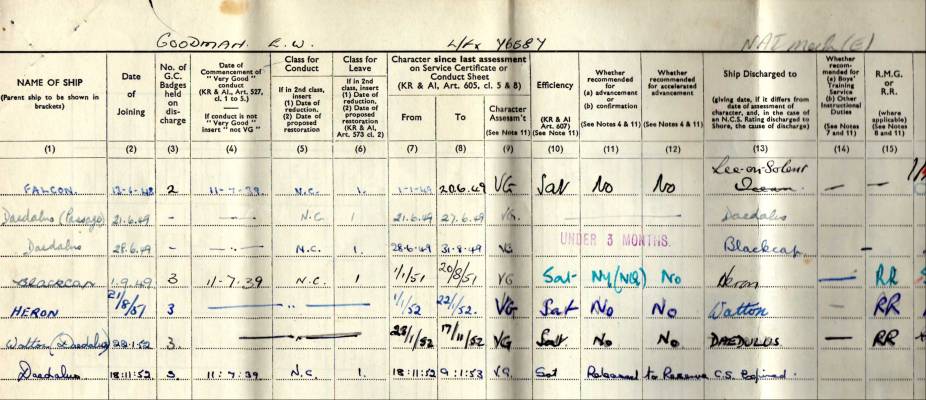 GOODMAN. E.W. L/Fx 76687 NAI mech(E)
NAME OF SHIP
(Parent ship to be shown in brackets)
Date of Joining
No. of G.C. Badges held on discharge
Date of Commencement of "Very Good" conduct
(KR & AI., Art. 527, cl. 1 to 5.)
If conduct is not "Very Good" insert "not VG"
Class for Conduct
If in 2nd class, insert
(1) Date of reduction.
(2) Date of proposed restoration
Class for Leave
If in 2nd class, insert
(1) Date of reduction.
(2) Date of proposed restoration
(KR & AI, Art. 573 cl. 2)
Character since last assessment on Service Certificate or Conduct Sheet
(KR & AI, Art. 605, cl. 5 & 8)
From
To
Character Assesm't
(See Note 11)
Efficiency
(KR & AI Art. 607)
(See Note 11)
Whether recommended for
(a) advancement or
(b) confirmation
(See Notes 4 & 11)
Whether recommended for accelerated advancement
(See Notes 4 & 11)
Ship Discharged to
(giving date, if it differs from date of assessment of character, and, in the case of an N.C.S. Rating discharged to Shore, the cause of discharge)
Whether recommended for (a) Boys' Training Service (b) Other Instructional Duties
(See Notes 7 and 11)
R.M.G. or R.R.
(where applicable)
(See Notes 8 and 11)
(1) (2) (3) (4) (5) (6) (7) (8) (9) (10) (11) (12) (13) (14) (15)
Lee-on-Solent
FALCON. 2 11-7-39 N.C. 1. 1-1-49 20.6.49 VG Sat No No — —
Daedalus (Passage) 21.6.49 - —.— N.C. 1 21.6.49 27.6.49 VG. Daedalus
Daedalus 28.6.49 - —.— N.C. 1. 28-6-49 31-8-49 VG UNDER 3 MONTHS. Blackcap -
BLACKCAP 1.9.49 3 11-7-39 N.C. 1 1/1/51 20/8/51 VG Sat- (NQ) No Heron — RR
HERON 21/8/51 3 — " — 1/1/52 22/1/52. VG Sat No No Watton — RR
Watton (Daedalus) 23.1.52 3. — " — 23/1/52 17/11/52 VG Sat No No DAEDULUS — RR
Daedalus 18:11:52 3. 11:7:39 N.C. 1. 18:11:52 9:1:53 V.G. Sat Released to Reserve C.S. Expired.